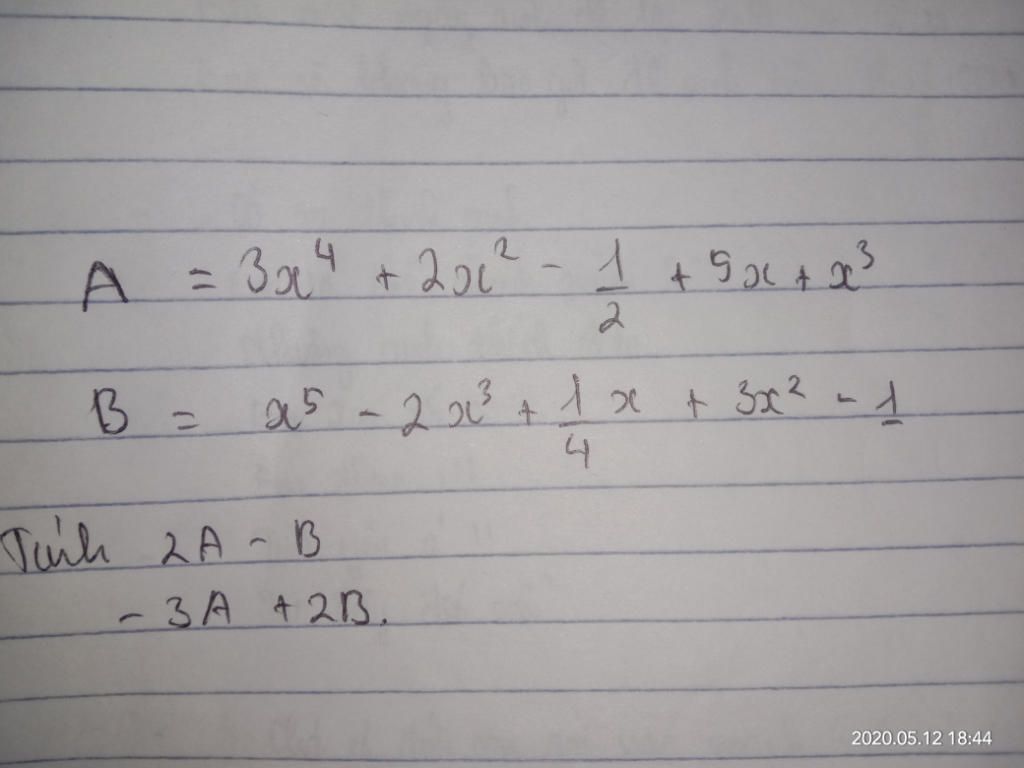 A = 3x⁴ + 2x² - 1/2 + 5x + x³
B = x⁵ - 2x³ + 1/4 x + 3x² - 1
Tính 2A - B
- 3A + 2B.
2020.05.12 18:44